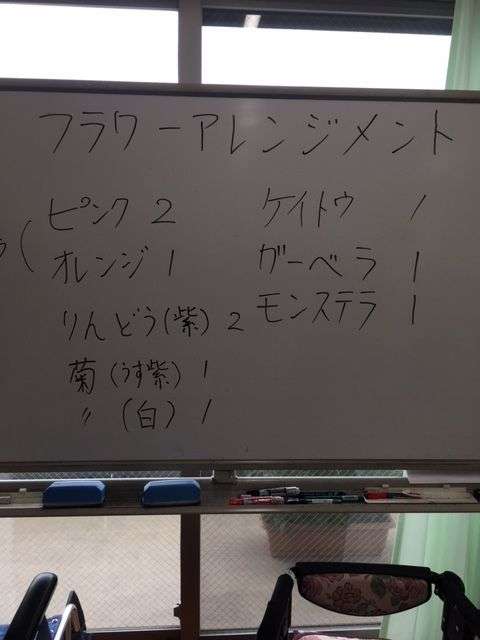 フラワーアレンジメント
ピンク 2
オレンジ 1
りんどう(紫) 2
菊 (うす紫) 1
〃 (白) 1
ケイトウ 1
ガーベラ 1
モンステラ 1